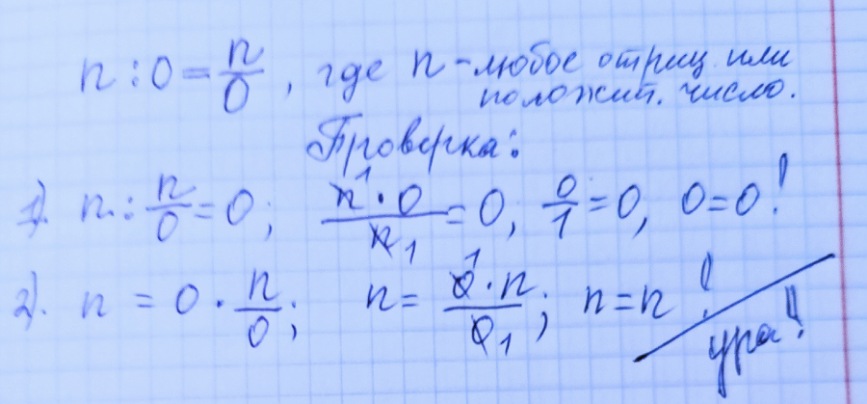 n : 0 = n/0, где n - любое отриц или
положит. число.
Проверка:
1). n : n/0 = 0; n¹·0/n₁ = 0, 0/1 = 0, 0 = 0!
2). n = 0 · n/0; n = 0¹·n/0₁; n = n!
ура!!